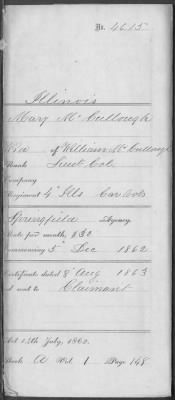 No. 4615
Illinois
Mary McCullough
Wid of William McCullough
Rank Lieut Col
Company
Regiment 4" Ills Cav Vols
Springfield Agency
Rate per month, $30
commencing 5" Dec 1862
Certificate dated 8" Aug 1863
& sent to Claimant
Act 14th July, 1862.
Book A Vol. 1 Page 148